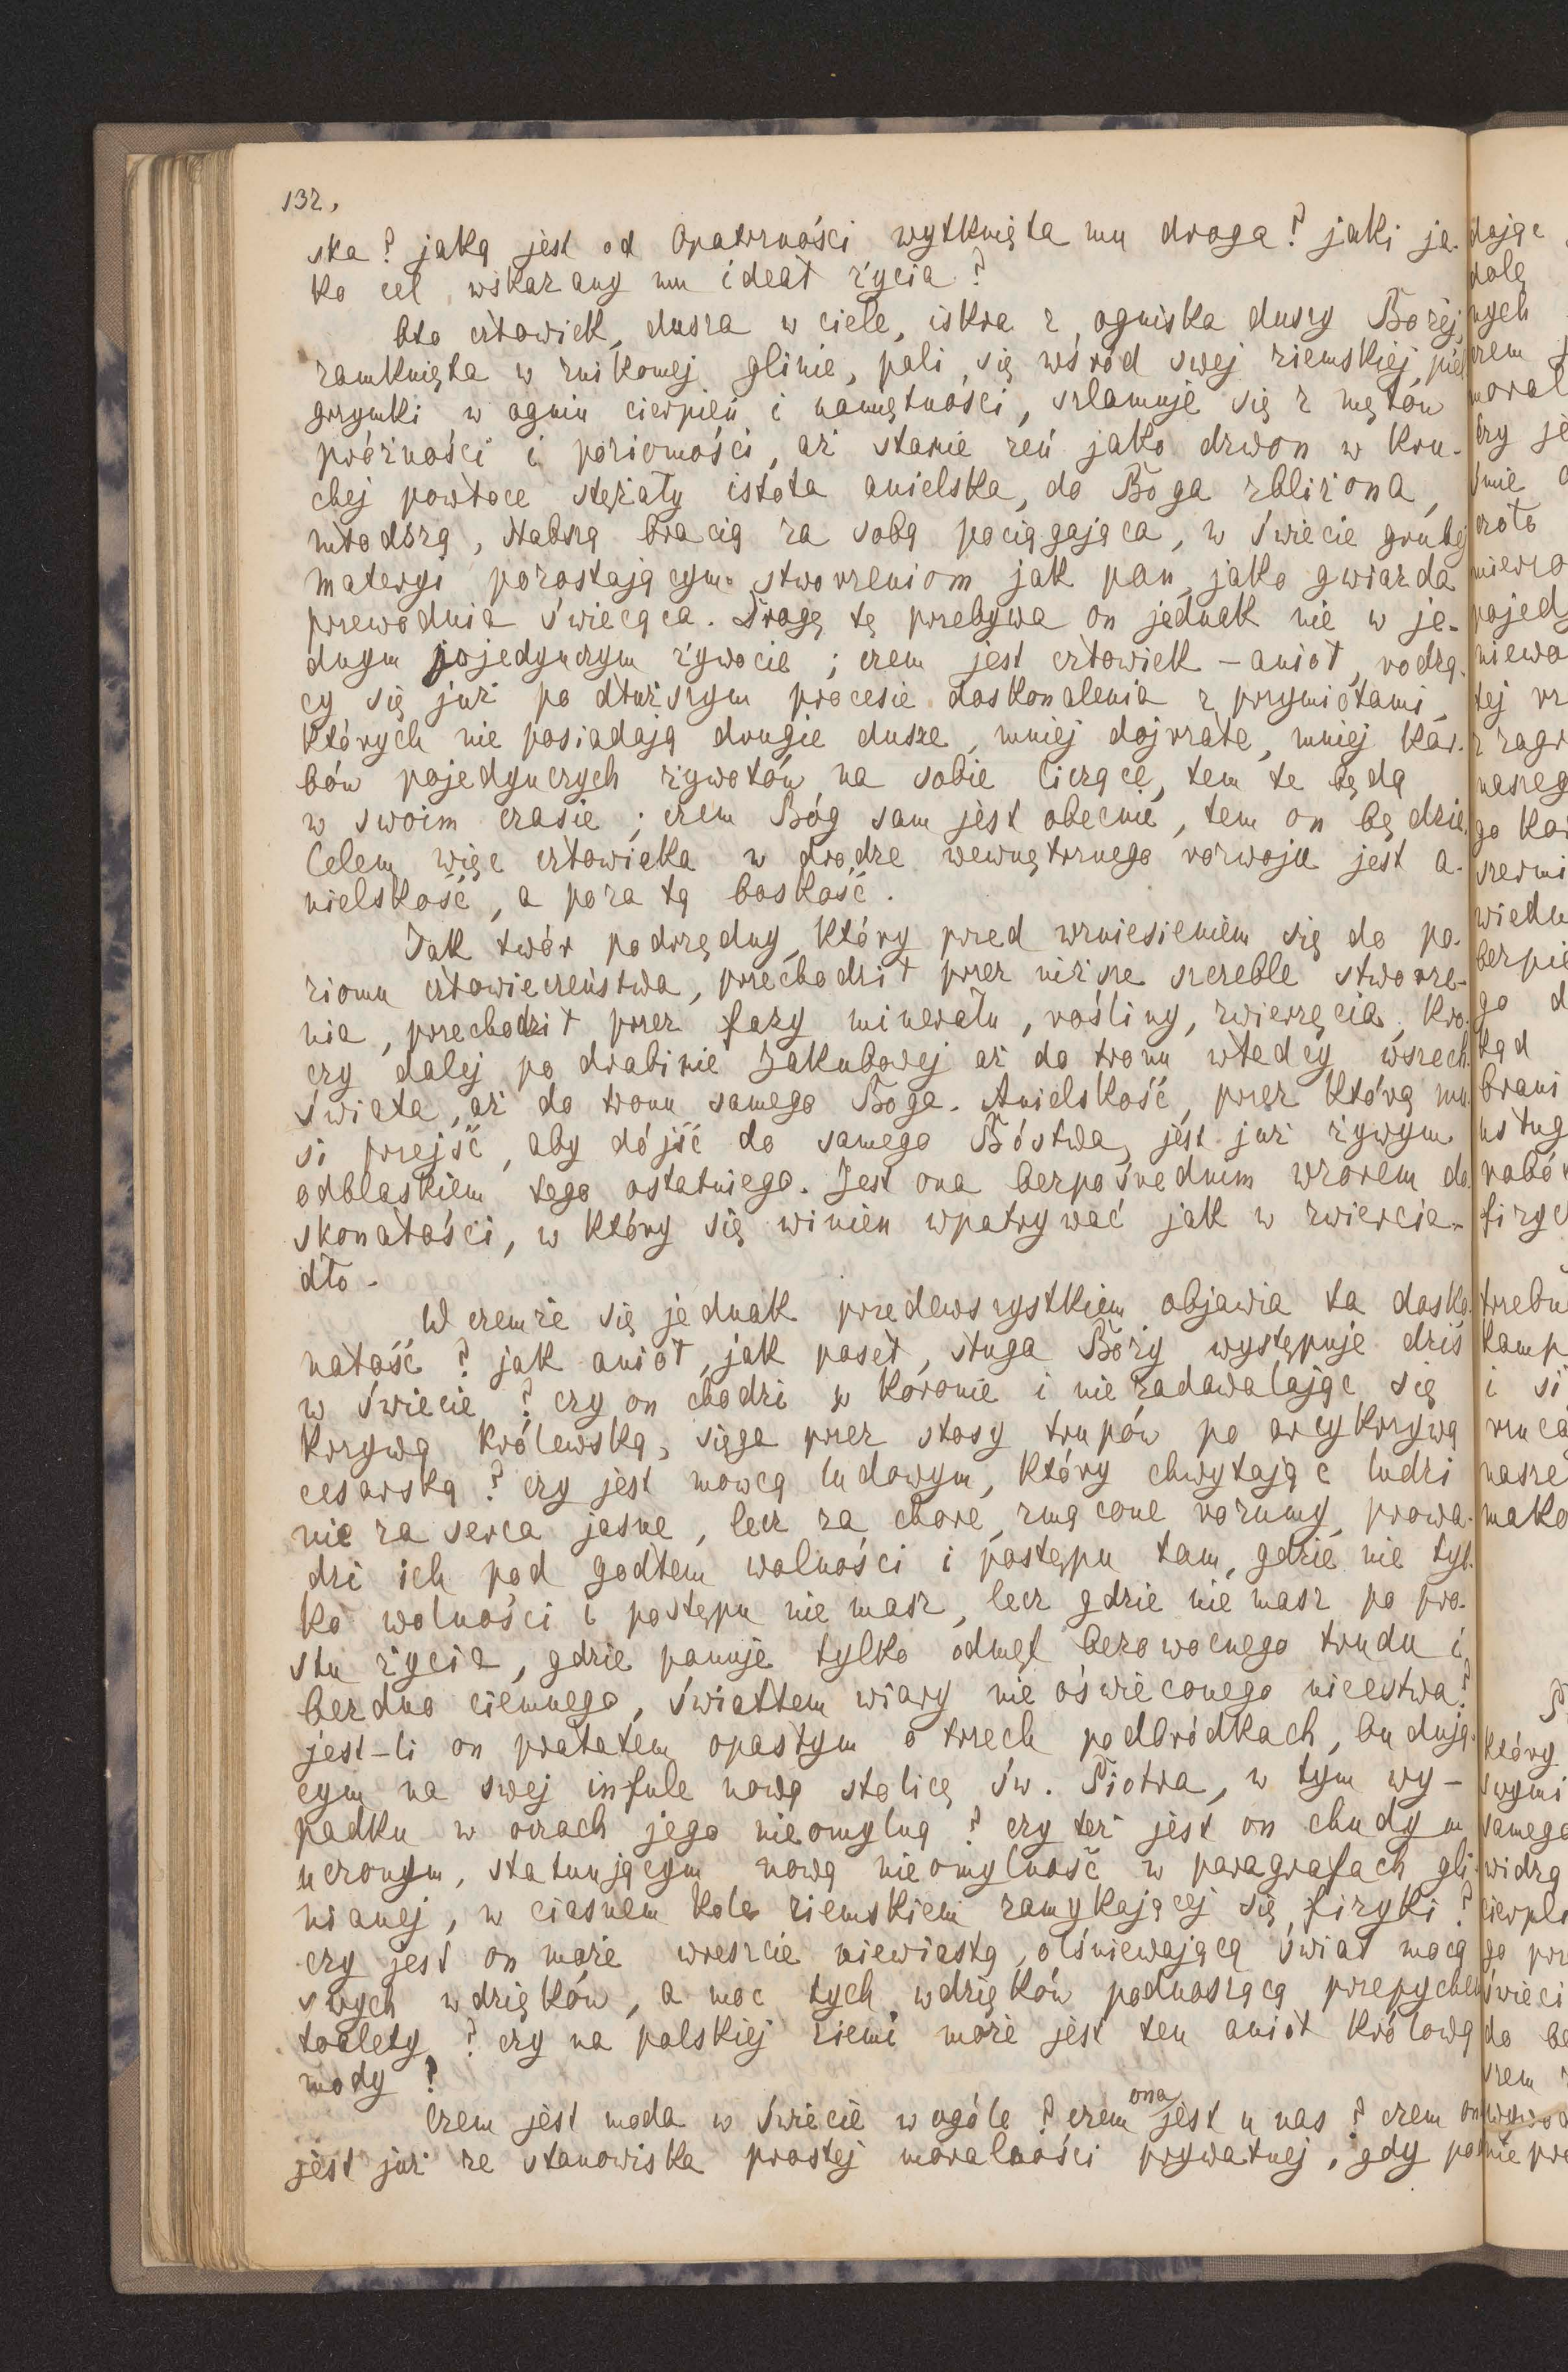 132.
ska? jaką jest od Opatrzności wytknięta mu droga? jaki ja-
ko cel wskazany mu ideał życia?
Oto człowiek, dusza w ciele, iskra z ogniska duszy Bożej,
zamknięta w znikomej glinie, pali się wśród swej ziemskiej piel
grzymki w ogniu cierpień i namiętności, szlamuje się z mętów
próżności i poziomości, aż stanie zeń jako dzwon w kru-
chej powłoce stężały istota anielska, do Boga zbliżona,
młodszą, słabszą bracią za sobą pociągająca, w świecie grubej
materyi pozostającym stworzeniom jak pan, jako gwiazda
przewodnia świecąca. Drogę tę przebywa on jednak nie w je-
dnym pojedynczym żywocie; czem jest człowiek – anioł, rodzą-
cy się już po dłuższym procesie doskonalenia z przymiotami,
których nie posiadają drugie dusze, mniej dojrzałe, mniej kar-
bów pojedynczych żywotów na sobie liczące, tem te będą
w swoim czasie; czem Bóg sam jest obecnie, tem on będzie.
Celem więc człowieka w drodze wewnętrznego rozwoju jest a-
nielskość, a poza tą boskość.
Jak twór podrzędny, który przed wzniesieniem się do po-
ziomu człowieczeństwa, przechodził przez niższe szczeble stworze-
nia, przechodził przez fazy minerału, rośliny, zwierzęcia, kro-
czy dalej po drabinie Jakubowej aż do tronu władcy wszech
świata, aż do tronu samego Boga. Anielskość, przez którą mu-
si przejść, aby dójść do samego Bóstwa, jest już żywym
odblaskiem tego ostatniego. Jest ona bezpośrednim wzorem do-
skonałości, w który się winien wpatrywać jak w zwiercia-
dło.
W czemże się jednak przedewszystkiem objawia ta dosko-
nałość? jak anioł, jak poseł, sługa Boży występuje dziś
w świecie? czy on chodzi w koronie i nie zadawalając się
krzywą królewską, sięga przez stosy trupów po arcykrzywą
cesarską? czy jest mowcą ludowym, który chwytając ludzi
nie za serca jasne, lecz za chore, zmącone rozumy, prowa-
dzi ich pod godłem wolności i postępu tam, gdzie nie tyl-
ko wolności i postępu nie masz, lecz gdzie nie masz po pro-
stu życia, gdzie panuje tylko odmęt bezowocnego trudu i
bezdno ciemnego, światłem wiary nie oświeconego nicestwa?
jest-li on prałatem opasłym o trzech podbródkach, budują-
cym na swej infule nową stolicę św. Piotra, w tym wy-
padku w oczach jego nieomylną? czy też jest on chudym
uczonym, statuującym nową nieomylność w paragrafach gli-
nianej, w ciasnem kole ziemskiem zamykającej się fizyki?
czy jest on może wreszcie niewiastą, olśniewającą świat mocą
swych wdzięków, a moc tych wdzięków podnoszącą przepychem
toalety? czy na polskiej ziemi może jest ten anioł królową
mody?
Czem jest moda w świecie w ogóle? czem ona jest u nas? czem on
jest już ze stanowiska prostej moralności prywatnej, gdy po
dając
dolę
nych
czem
moral
czy je
śnie
czoło
pojedy
niewo
tej
z
naszeg
go
wiedn
go d
kąd
brani
usług
fizyc
trzebu
kamp
i si
rzuca
nasze
mako
który
swymi
samego
widzą
cierpli
świeci
do be
nie